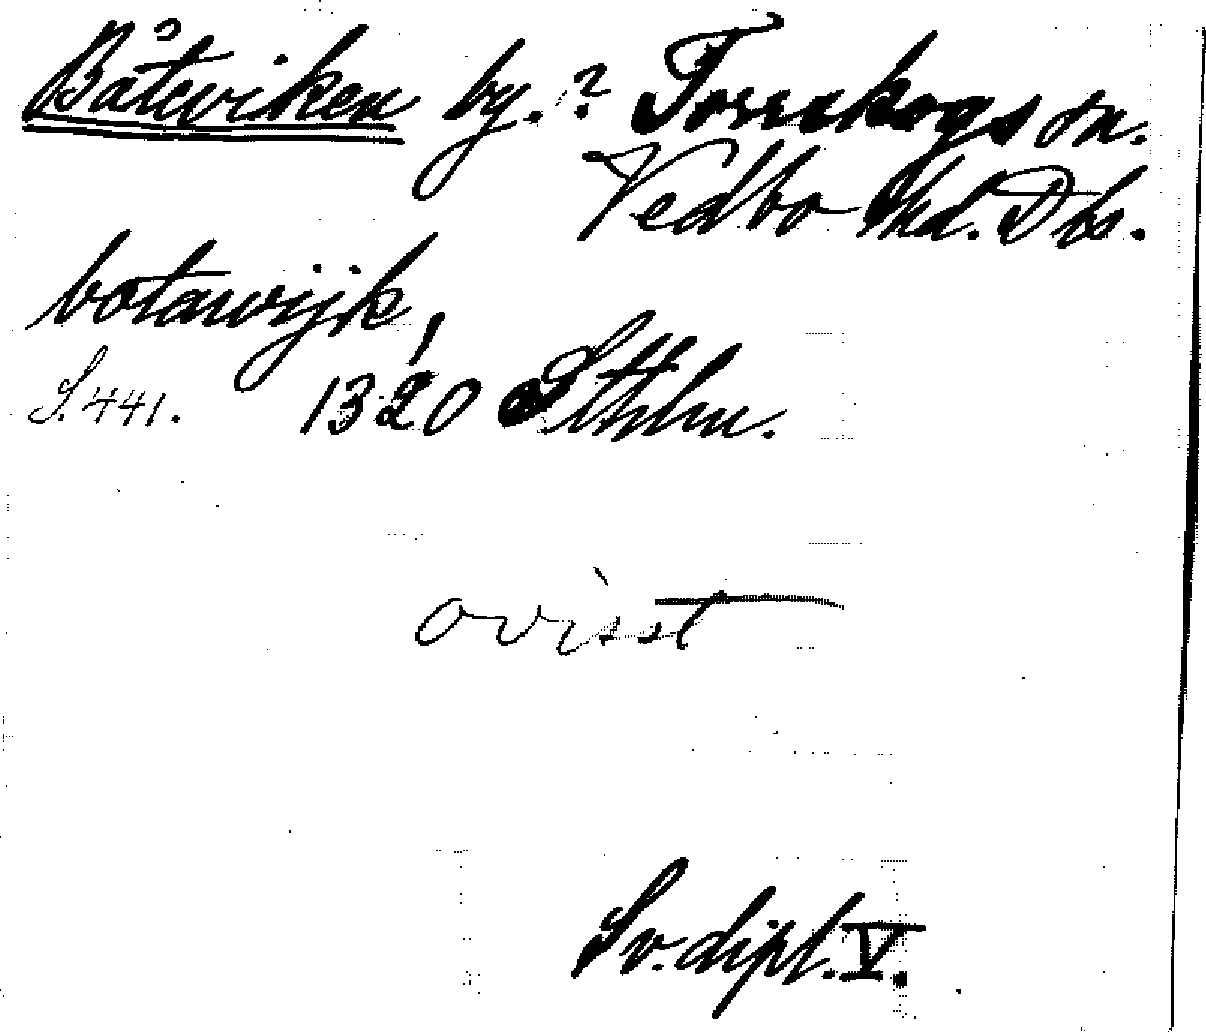 Båteviken by.? Torrskogs sn.
Vedbo hd. Dls.
botawijk,
S. 441. 1320 Sthlm.
ovisst
Sv. dipl. V.